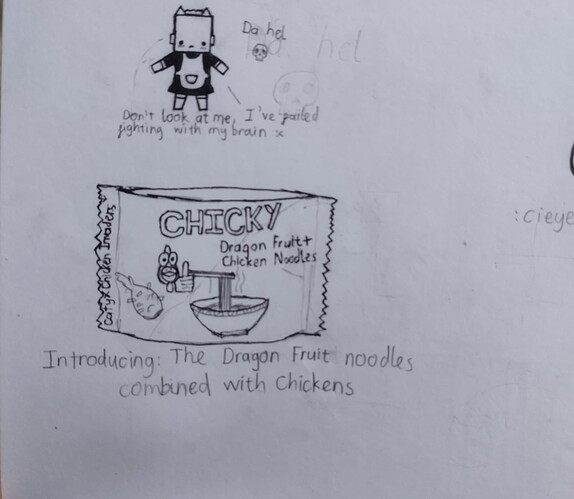 Da hel
Don't look at me, I've parled
fighting with my brain x
CHICKY
Dragon Fruit+
Chicken Noodles
Introducing: The Dragon Fruit noodles
combined with Chickens
:cieye